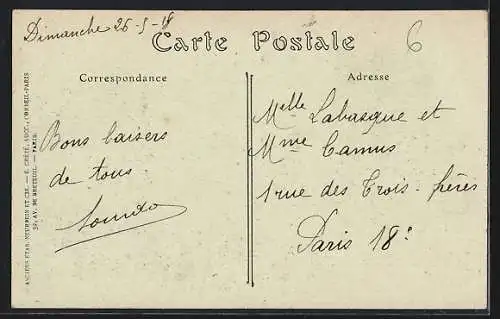 Dimanche 26-5-18
6
Carte Postale
Correspondance
Adresse
Bons baisers
de tous
Melle Labasque et
Mme Camus
1 rue des Trois-frères
Paris 18e
ANCIENS ETAB. NEURDEIN ET CIE. — E. CRÉTÉ, SUCC., CORBEIL-PARIS
52, AV. DE BRETEUIL. — PARIS.